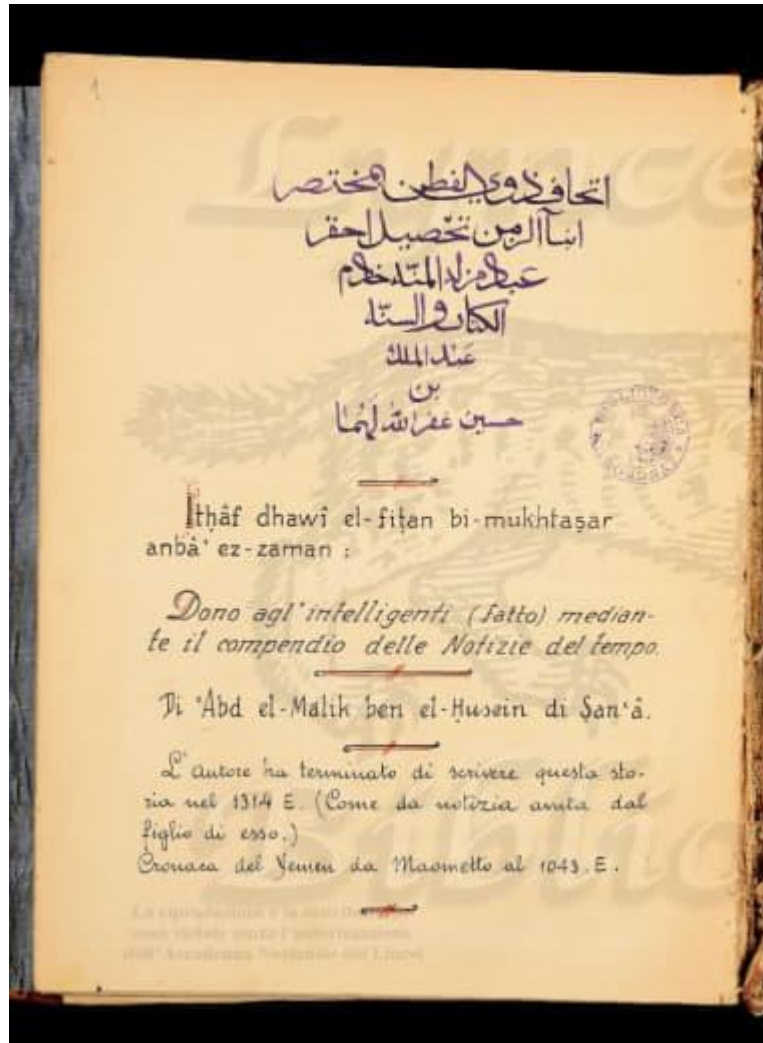 1
اتحاف ذوي الفطن بمختصر
انبآ الزمن تحصيل احقر
عباد
الكتاب والسنّة
عبد الملك
بن
حسين غفر الله لهما
Itḥâf dhawî el-fiṭan bi-mukhtaṣar
anbâ' ez-zaman :
Dono agl'intelligenti (fatto) median-
te il compendio delle Notizie del tempo.
Di 'Abd el-Malik ben el-Ḥusein di Ṣan'â.
L'autore ha terminato di scrivere questa sto-
ria nel 1314 E. (Come da notizia avuta dal
figlio di esso.)
Cronaca del Yemen da Maometto al 1043. E.
La riproduzione e la
sono vietate senza l'autorizzazione
dell'Accademia Nazionale dei Lincei